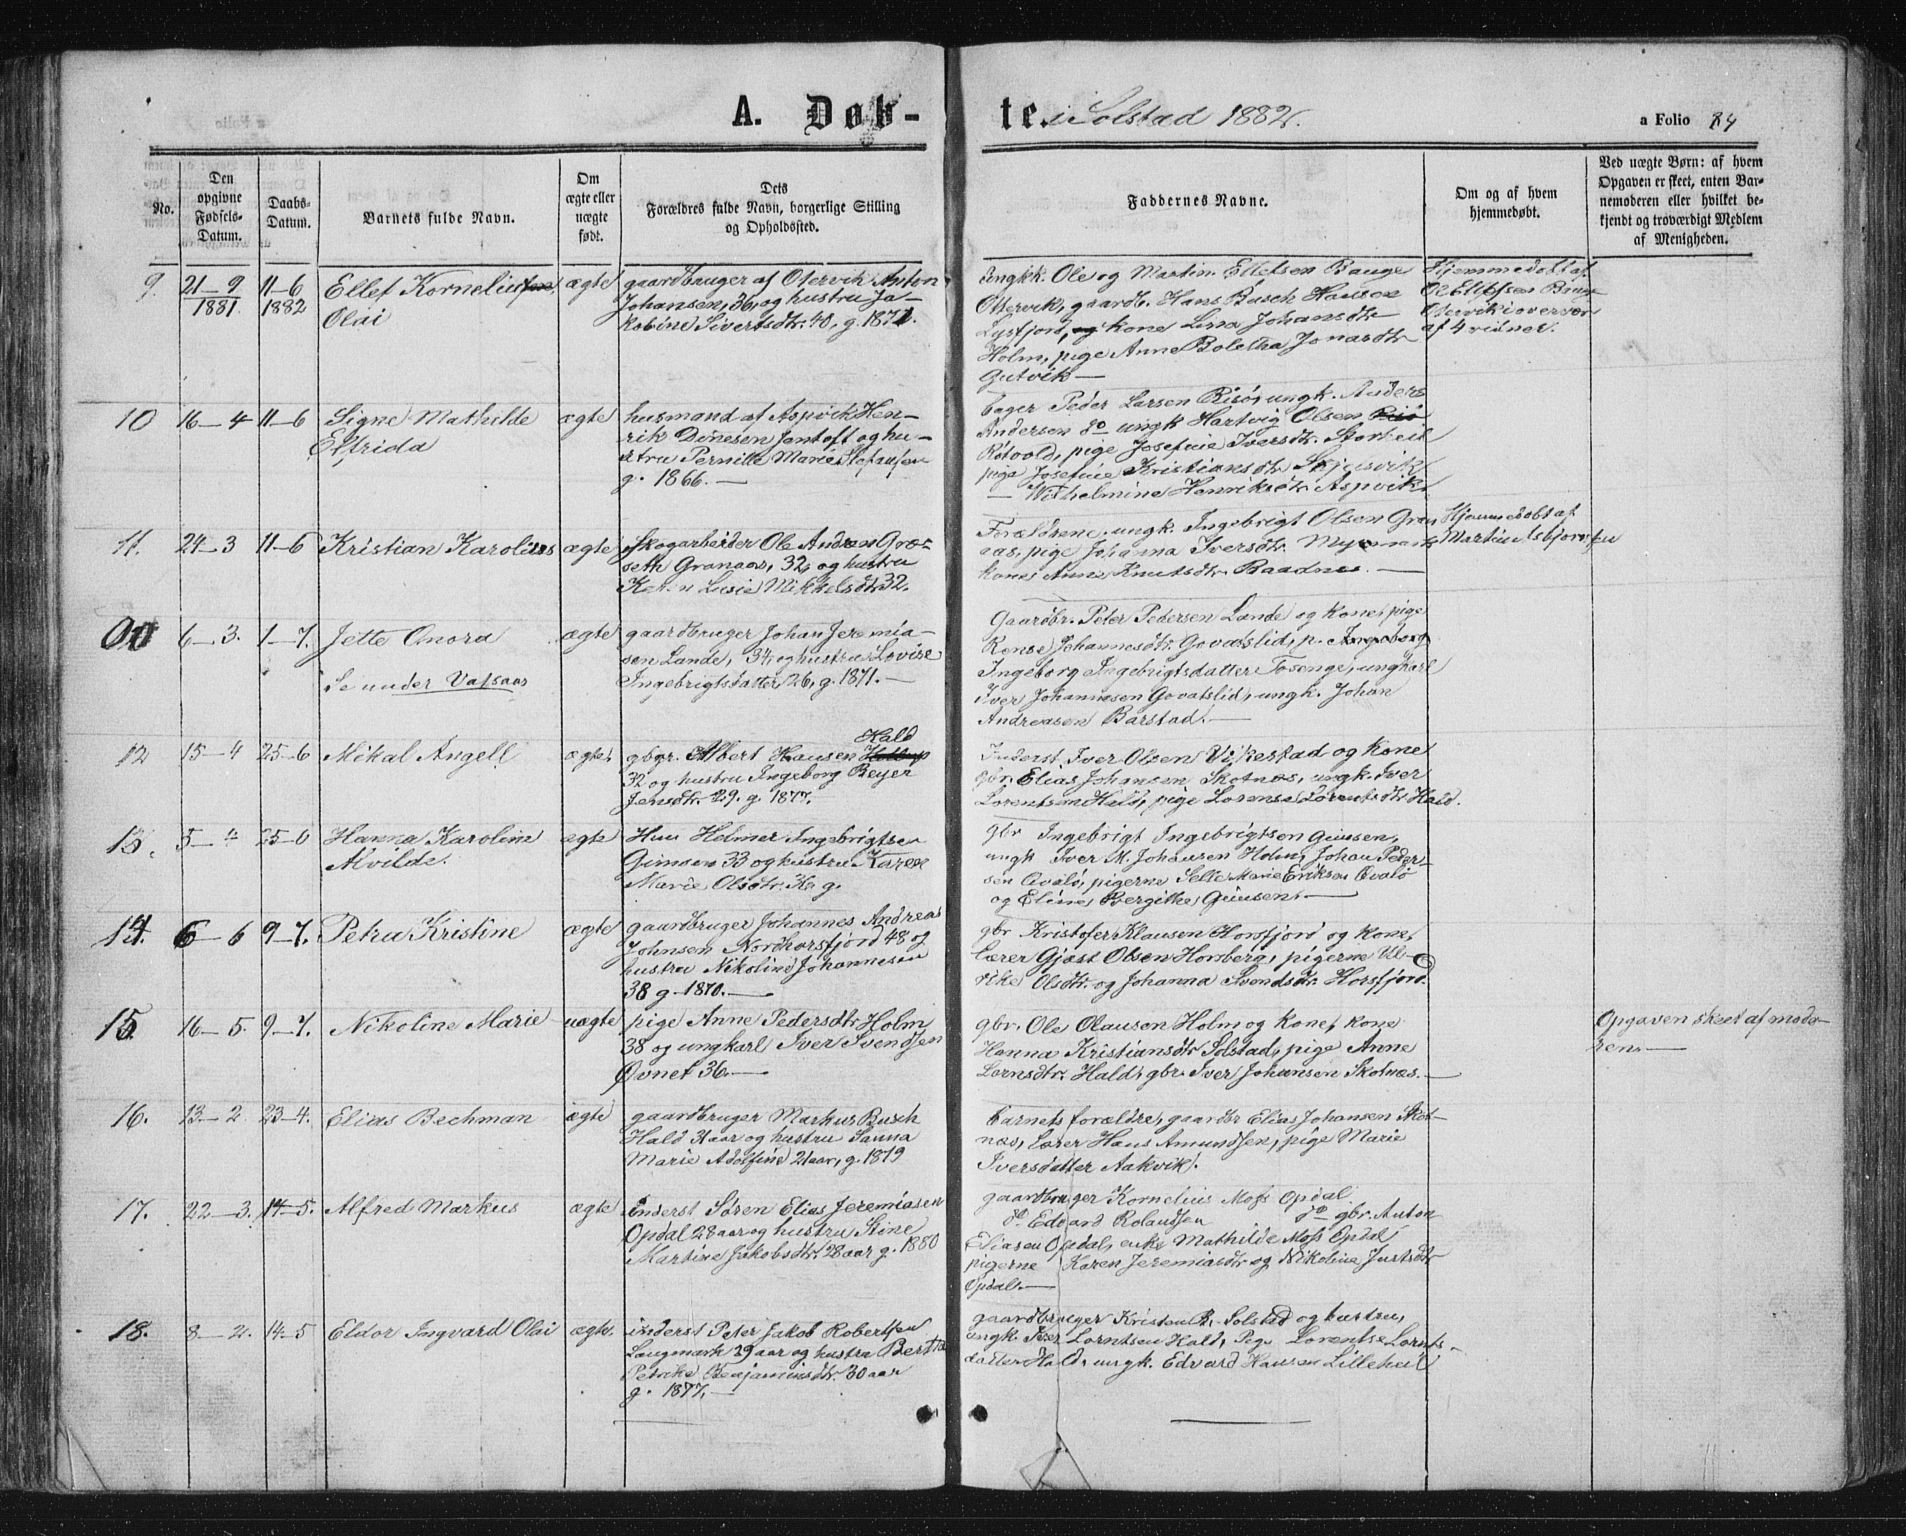 A. Døb-
te. i Solstad 1882.
a Folio 84
No.
Den
opgivne
Fødsels-
Datum.
Daabs-
Datum.
Barnets fulde Navn.
Om
ægte eller
uægte
født.
Dets
Forældres fulde Navn, borgerlige Stilling
og Opholdssted.
Faddernes Navne.
Om og af hvem
hjemmedøbt.
Ved uægte Børn: af hvem
Opgaven er skeet, enten Bar-
nemoderen eller hvilket be-
kjendt og troværdigt Medlem
af Menigheden.
9. 21–9 11–6 Ellef Kornelius ægte gaardbruger af Otervik Anton
1881. 1882 Olai Johansen, 36, og hustru Ja-
kobine Sivertsdtr. 40, g. 1871.
Ungkk. Ole og Martin Ellefsen Bauge
Otervik, gaardb. Hans Busch Hansen
Lysfjord, og kone Lina Johansdtr
Holm, pige Anne Boletha Jonasdtr
Gutvik—
Hjemmedøbt af
Ol Ellefsen Bauge
Otervik i overvær
af 4 vidner.
10 16–4 11–6 Signe Mathilde ægte husmand af Aspvik Hen-
Elfrida rik Dønesen Jantoft og hu-
stru Pernille Marie Stefansen
g. 1866.—
bøger Peder Larsen Risø, ungk. Anders
Andersen do ungk Hartvig Olsen
Røtvold, pige Josefine Iversdtr. Storheil
pige Josefine Kristiansdtr Skjelsvik
— Wilhelmine Henriksdtr Aspvik
11. 24–3 11–6 Kristian Karolius ægte Skogarbeider Ole Andreas Græs-
seth Granaas, 32, og hustru
Lusie Mikkelsdtr 32.
Forældrene, ungk. Ingebrigt Olsen Gran
aas, pige Johanna Iversdtr.
kone Anne Knutsdtr. Baadnes.—
Hjemmedøbt af
Martin Asbjørnsen
00 6–3. 1–7. Jette Onora ægte gaardbruger Johan Jeremia-
Se under Vassaas sen Lande, 34 og hustru Lovise
Ingebrigtsdatter, 26, g. 1871.—
Gaardbr. Peter Pedersen Lande og kone, pige
Johannesdtr. Govatslid, p. Ingeborg
Ingeborg Ingebrigtsdatter Tosenge, ungkarl
Iver Johannesen Govatslid, ungk. Johan
Andreasen Barstad.—
12 15–4 25–6 Mikal Angell ægte gbgr. Albert Hansen Hald
32 og hustru Ingeborg Beyer
Jensdtr. 29. g. 1877.
Inderst Iver Olsen Vikestad og Kone
gbr. Elias Johansen Skotnes, ungk. Iver
Lorentsen Hald, pige Lorense Lorentsdtr Hald.
13. 5–4 25–6 Hanna Karoline ægte Hum Helmer Ingebrigtsen
Alvilde. Gimsen 33 og hustru Karen
Marie Olsdtr.
gbr Ingebrigt Ingebrigtsen Gimsen,
ungk Iver M. Johansen Holm, Johan Peder-
sen Qvalø, pigerne Selle Marie Eriksen Qvalø
og Eline Bergithe Gimsen.—
14. 6–6 9–7. Petra Kristine ægte gaardbruger Johannes Andreas
Johnsen Nordhorsfjord 48 og
hustru Nikoline Johannesen
38 g. 1870.—
gbr Kristofer Klausen Horsfjord og kone,
lærer Gjest Olsen Hornberg, pigerne Ul-
rike Olsdtr. og Johanna Svendsdtr. Horsfjord.
15. 16–5. 9–7. Nikoline Marie uægte pige Anne Pedersdtr Holm
38 og ungkarl Iver Svendsen
Øvnet 36.—
gbr. Ole Olausen Holm og kone, kone
Hanna Kristiansdtr Solstad, pige Anne
Lornsdtr. Hald, gbr. Iver Johansen Skotnes.—
Opgaven skeet af mode-
ren.—
16. 13–2 23–4. Elias Bechman ægte gaardbruger Markus Busch
Hald 31 aar og hustru Sanna
Marie Adolfine 21 aar, g. 1879
Barnets forældre, gaardbr Elias Johansen Skot-
nes, Lærer Hans Amundsen, pige Marie
Iversdatter Aakvik.
17. 22–3. 14–5. Alfred Markus ægte Inderst Søren Elias Jeremiasen
Opdal 28 aar og hustru Stine
Martine Jakobsdtr. 28 aar g. 1880
gaardbruger Kornelius Moss Opdal
do Edvard Rolandsen do gbr. Anton
Eliasen Opdal, enke Mathilde Moss Opdal
pigerne Karen Jeremiasdtr og Nikoline Justsdtr
Opdal.—
18. 8–2. 14–5 Eldor Ingvard Olai ægte. inderst Peter Jakob Robertsen
Langmark 29 aar og hustru Bertha
Petrike Benjaminsdtr. 30 aar
g. 1877.—
gaardbruger Kristen B. Solstad og hustru,
ungk Iver Lorntsen Hald, Pige Lorentse Lornts-
datter Hald, ungk. Edvard Hansen Lilleheil